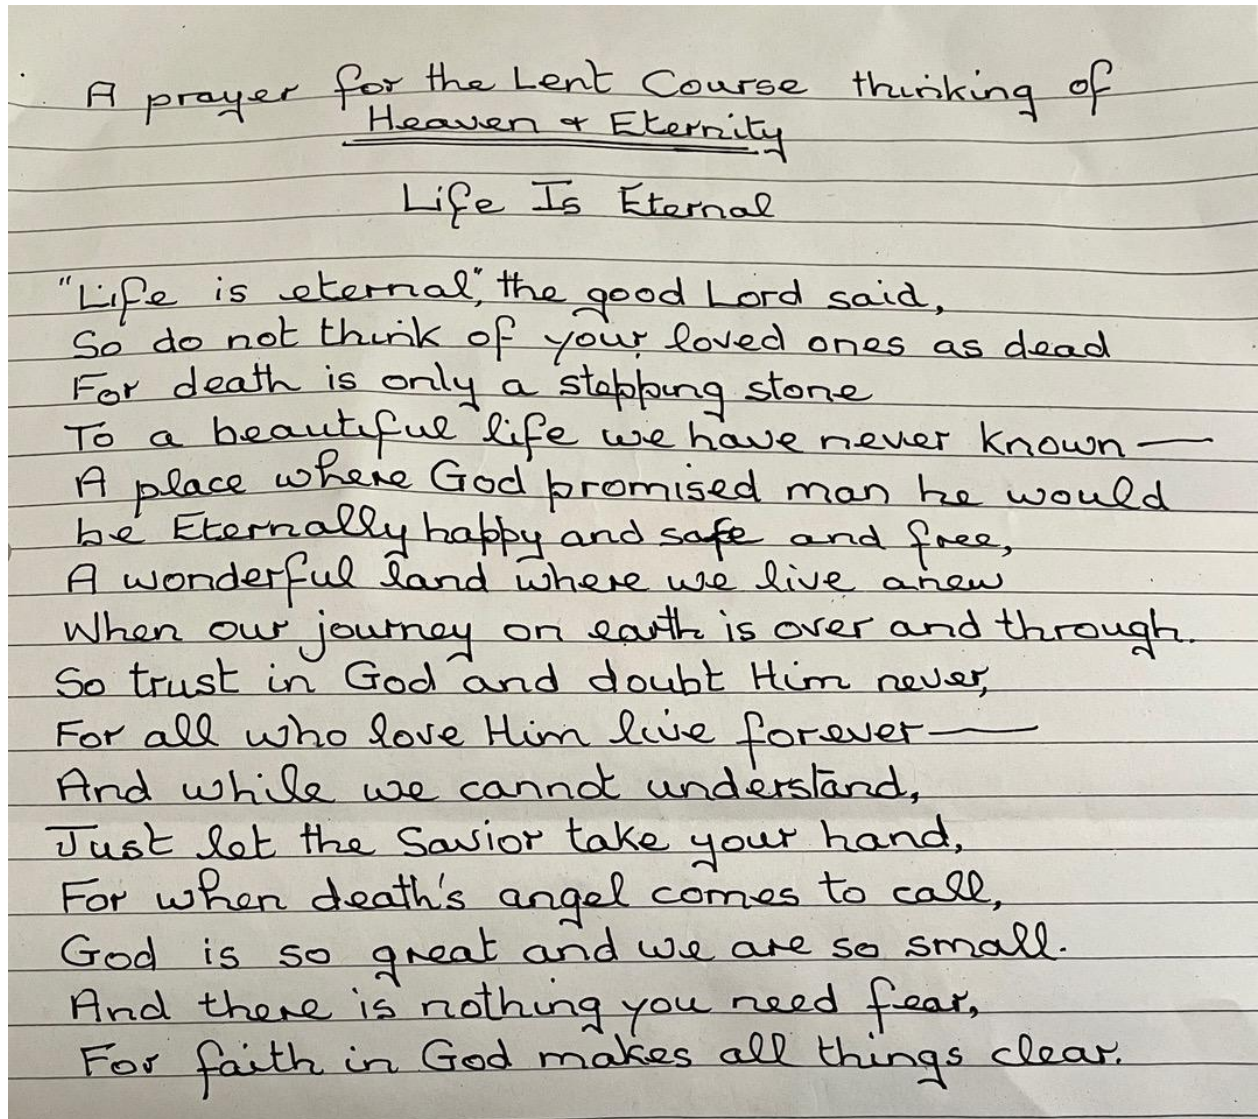 A prayer for the Lent Course thinking of
Heaven & Eternity
Life Is Eternal
"Life is eternal," the good Lord said,
So do not think of your loved ones as dead
For death is only a stepping stone
To a beautiful life we have never known —
A place where God promised man he would
be Eternally happy and safe and free,
A wonderful land where we live anew
When our journey on earth is over and through.
So trust in God and doubt Him never,
For all who love Him live forever —
And while we cannot understand,
Just let the Savior take your hand,
For when death's angel comes to call,
God is so great and we are so small.
And there is nothing you need fear,
For faith in God makes all things clear.